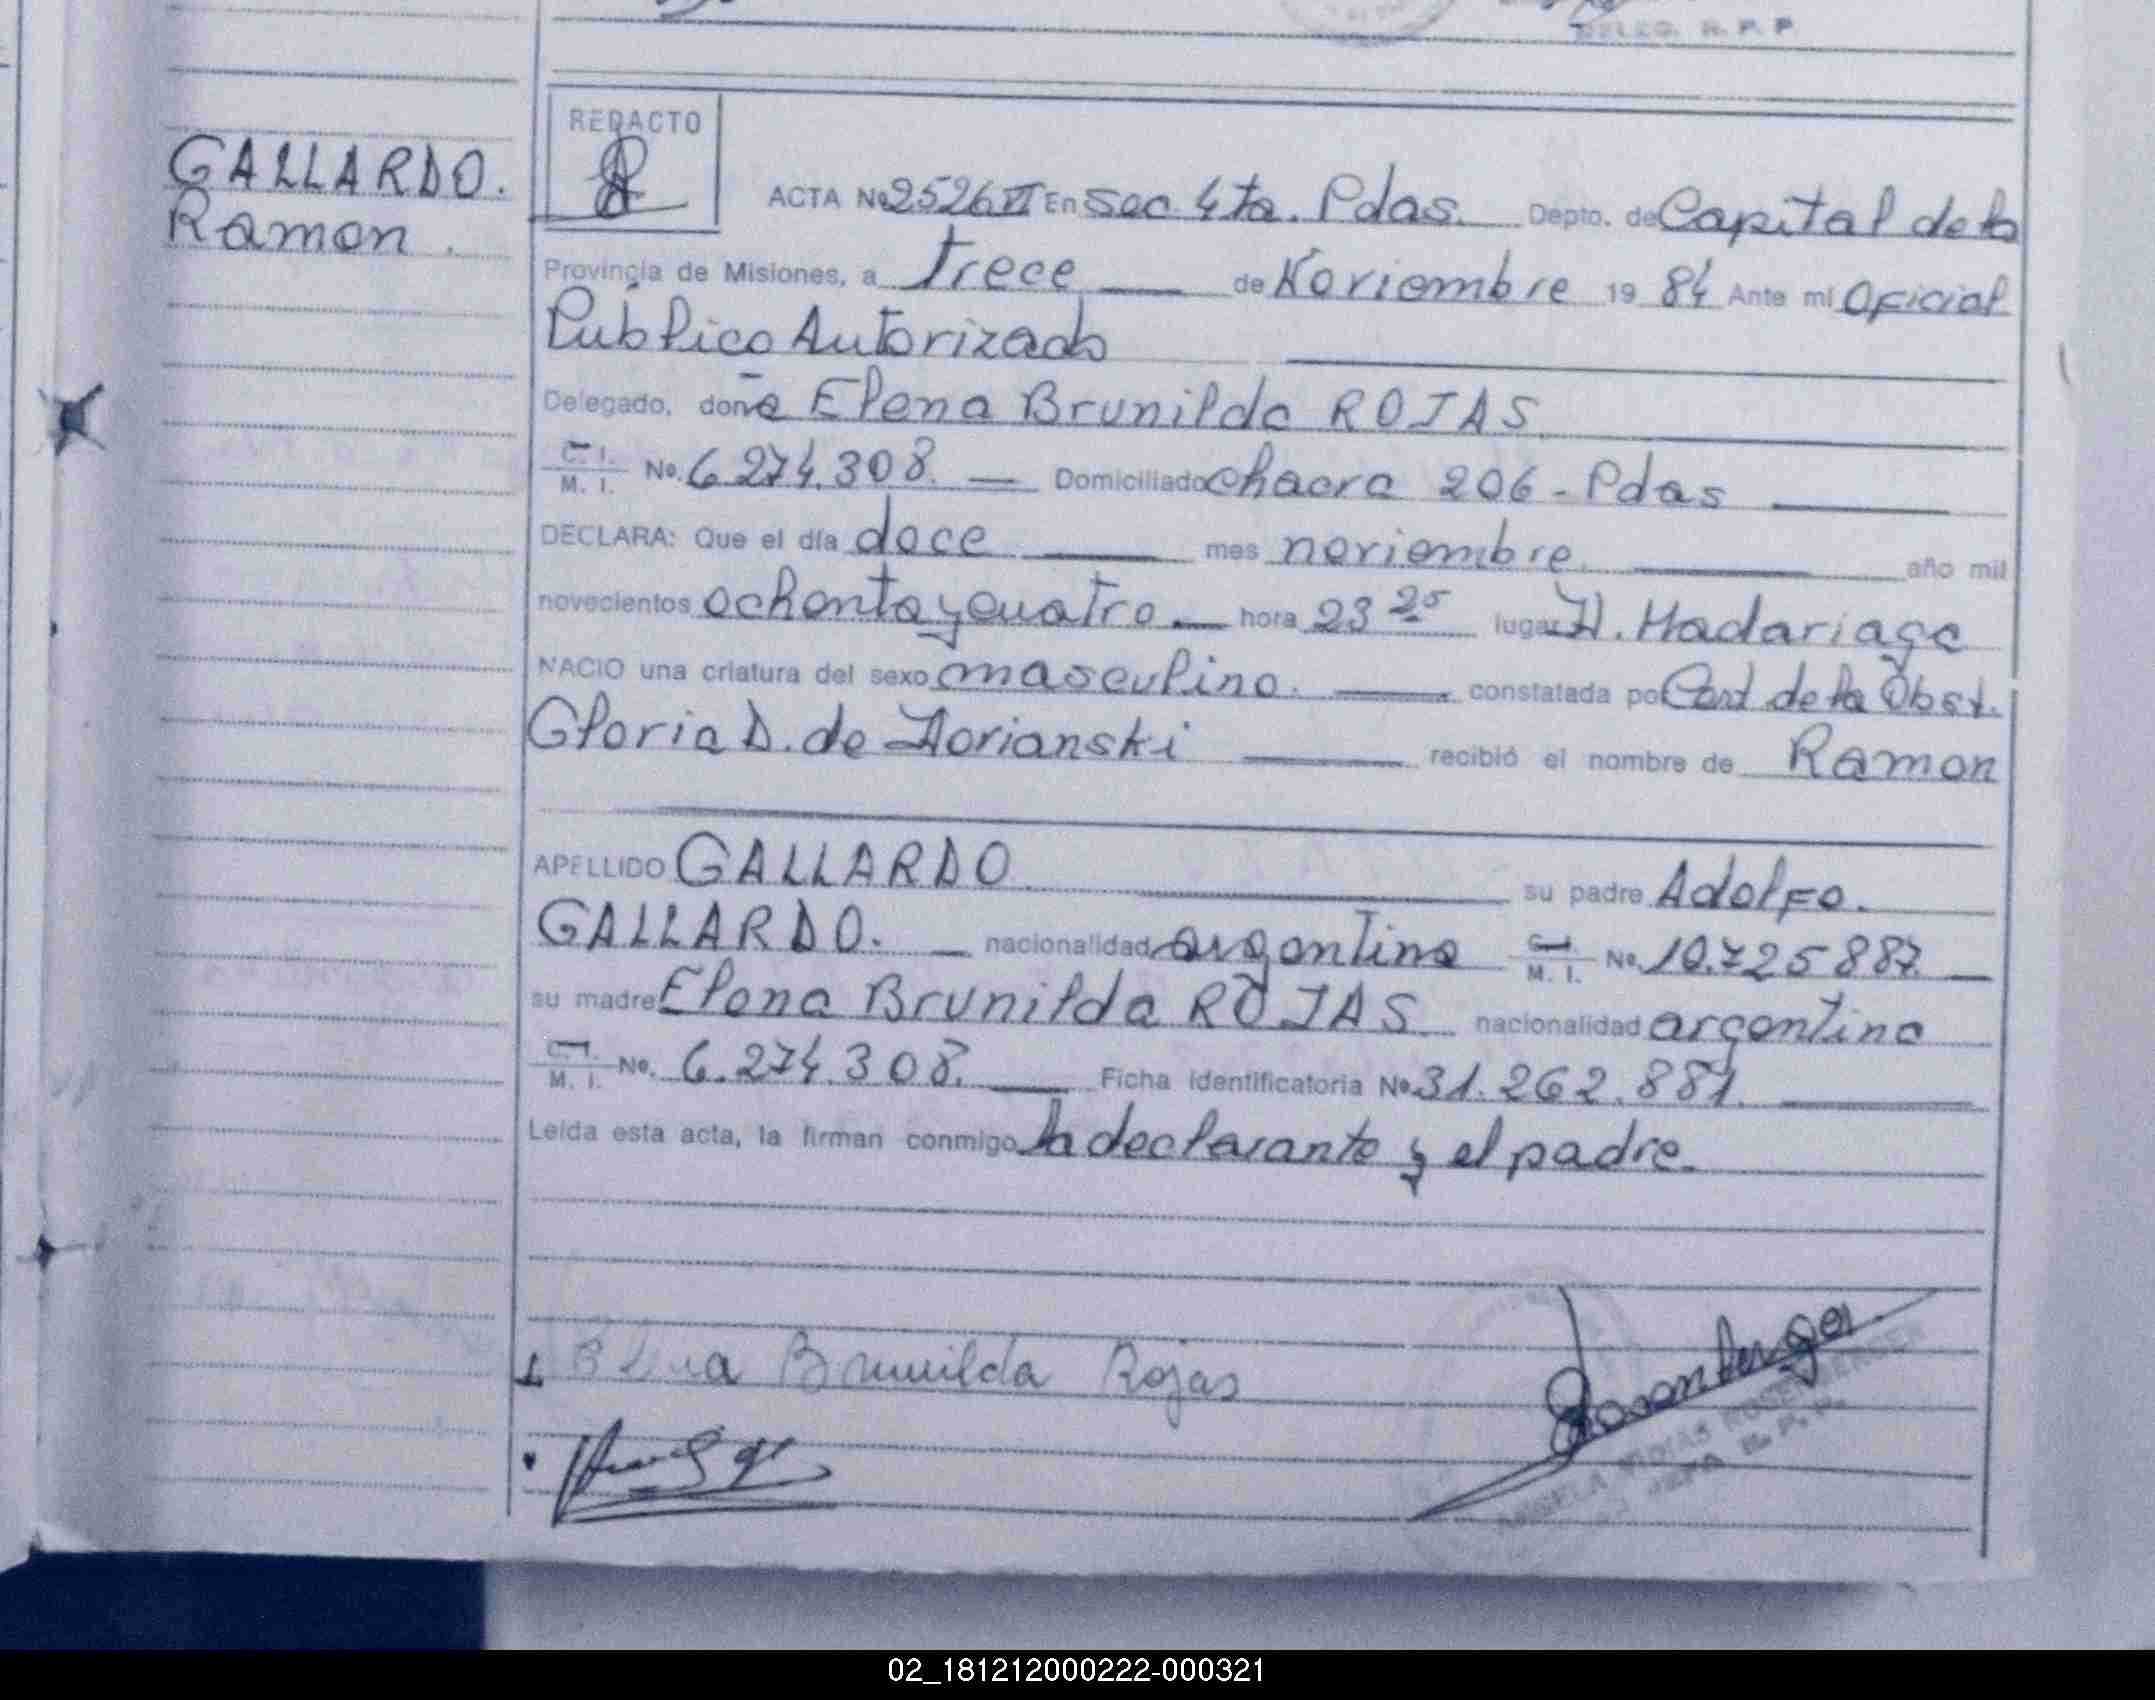 DELEG. R. P. P.
GALLARDO.
Ramon.
REDACTO
ACTA No 2526 VI En Sec. 4ta. Pdas. Depto. de Capital de la
Provincia de Misiones, a Trece de Noviembre 19 84 Ante mi Oficial
Publico Autorizado
Delegado, doña Elena Brunilda ROJAS
C. I. M. I. No. 6.274.308. Domiciliado chacra 206 - Pdas
DECLARA: Que el día doce mes noviembre. año mil
novecientos ochenta y cuatro hora 23 25 lugar H. Madariaga
NACIO una criatura del sexo masculino. constatada por Cert de la Obst.
Gloria D. de recibió el nombre de Ramon
APELLIDO GALLARDO su padre Adolfo.
GALLARDO. nacionalidad argentino C. I. M. I. No. 10.725.887.
su madre Elena Brunilda ROJAS nacionalidad argentina
C. I. M. I. No. 6.274.308. Ficha identificatoria No 31.262.881.
Leída esta acta, la firman conmigo la declarante y el padre.
Elena Brunilda Rojas
Rosenberger
ROSENBERGER
JEFA R. P. P.
02_181212000222-000321